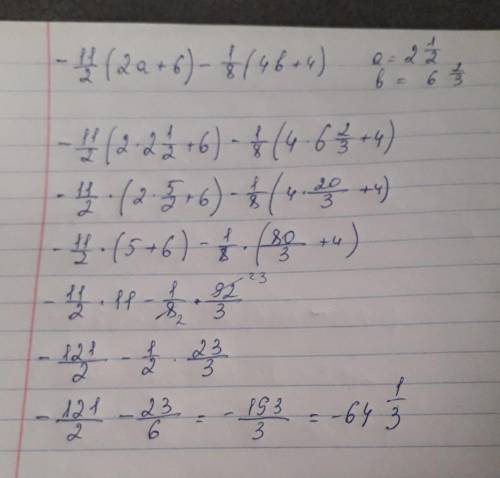 -11/2 (2a+6) - 1/8 (4b+4) a = 2 1/2
b = 6 2/3
-11/2 (2·2 1/2+6) - 1/8 (4·6 2/3+4)
-11/2 · (2·5/2+6) - 1/8 (4·20/3+4)
-11/2 · (5+6) - 1/8 · (80/3 +4)
-11/2 · 11 - 1/8 2 · 92/3 23
-121/2 - 1/2 · 23/3
-121/2 - 23/6 = -193/3 = -64 1/3